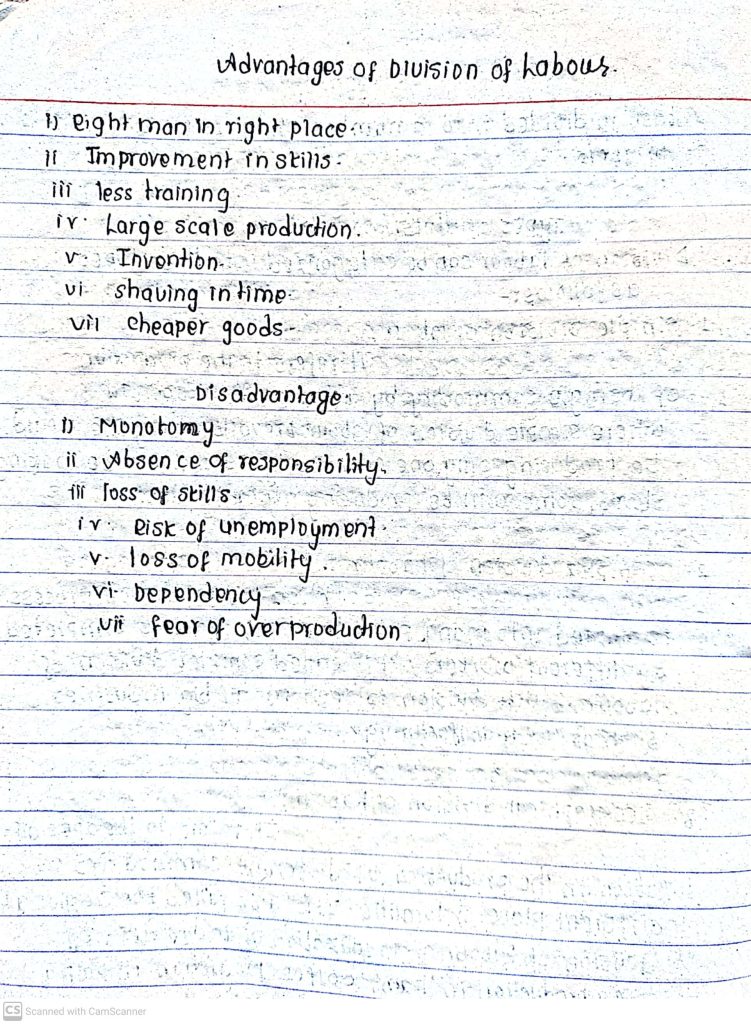 Advantages of Division of Labour.
i) Right man in right place.
ii Improvement in skills.
iii less training.
iv. Large scale production.
v. Invention.
vi. shaving in time.
vii cheaper goods-
Disadvantage.
i) Monotomy
ii Absence of responsibility.
iii loss of skills.
iv. Risk of unemployment.
v. loss of mobility.
vi. Dependency.
vii fear of over production.
CS Scanned with CamScanner